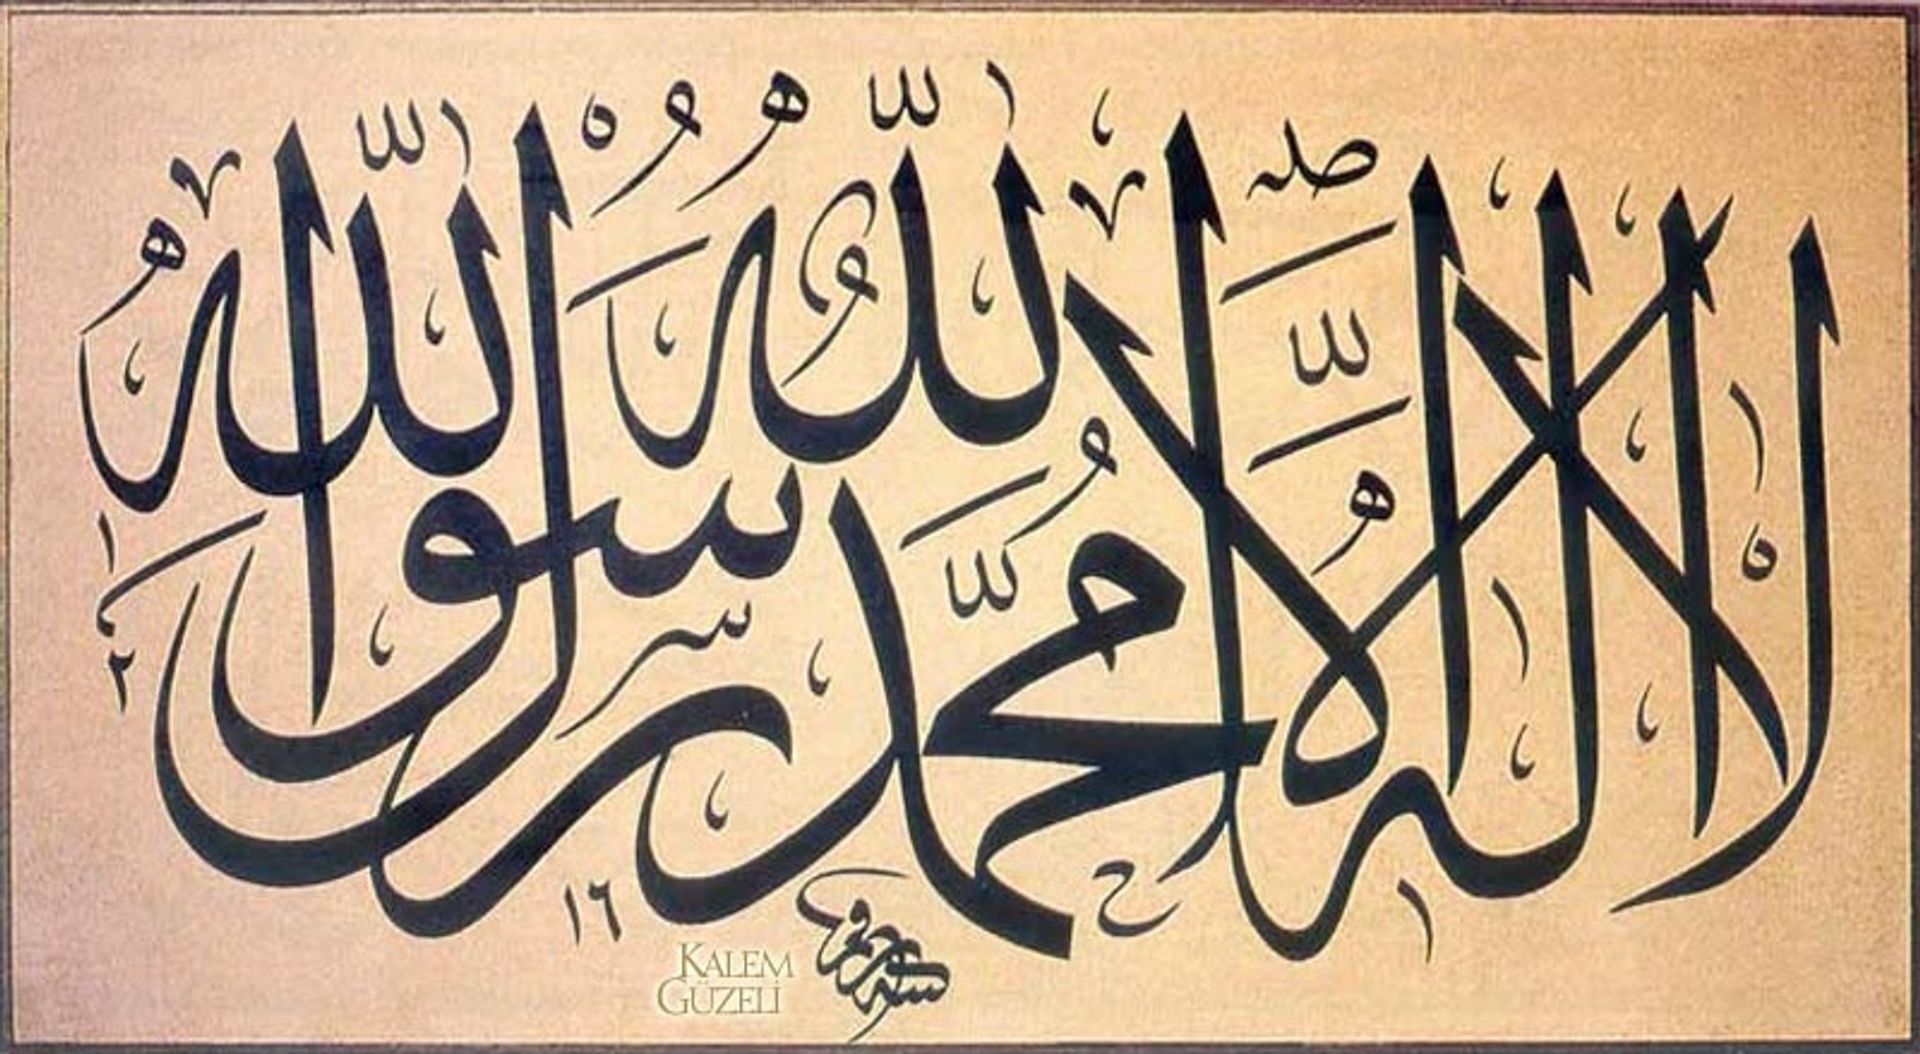 لا اله الا الله محمد رسول الله
KALEM
GÜZELİ